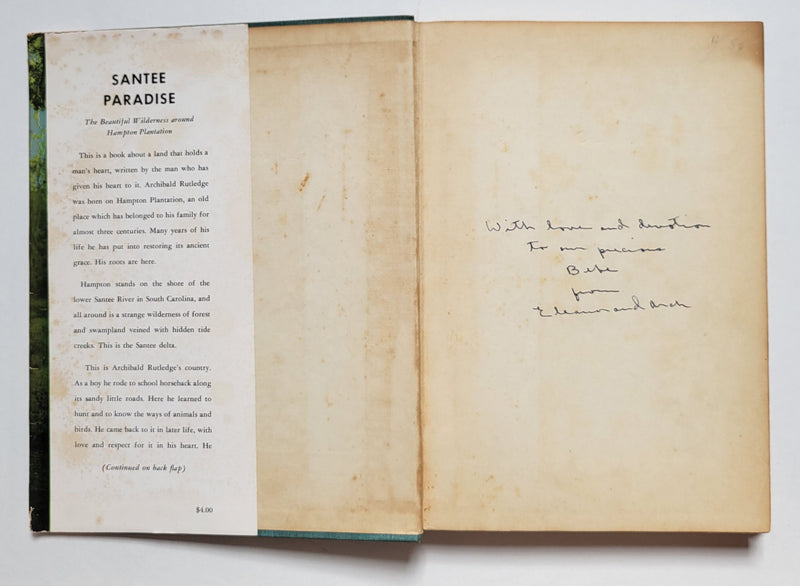 SANTEE
PARADISE
The Beautiful Wilderness around
Hampton Plantation
This is a book about a land that holds a
man's heart, written by the man who has
given his heart to it. Archibald Rutledge
was born on Hampton Plantation, an old
place which has belonged to his family for
almost three centuries. Many years of his
life he has put into restoring its ancient
grace. His roots are here.
Hampton stands on the shore of the
lower Santee River in South Carolina, and
all around is a strange wilderness of forest
and swampland veined with hidden tide
creeks. This is the Santee delta.
This is Archibald Rutledge's country.
As a boy he rode to school horseback along
its sandy little roads. Here he learned to
hunt and to know the ways of animals and
birds. He came back to it in later life, with
love and respect for it in his heart. He
(Continued on back flap)
$4.00
With love and devotion
to our precious
Bebe
from
Eleanor and Arch